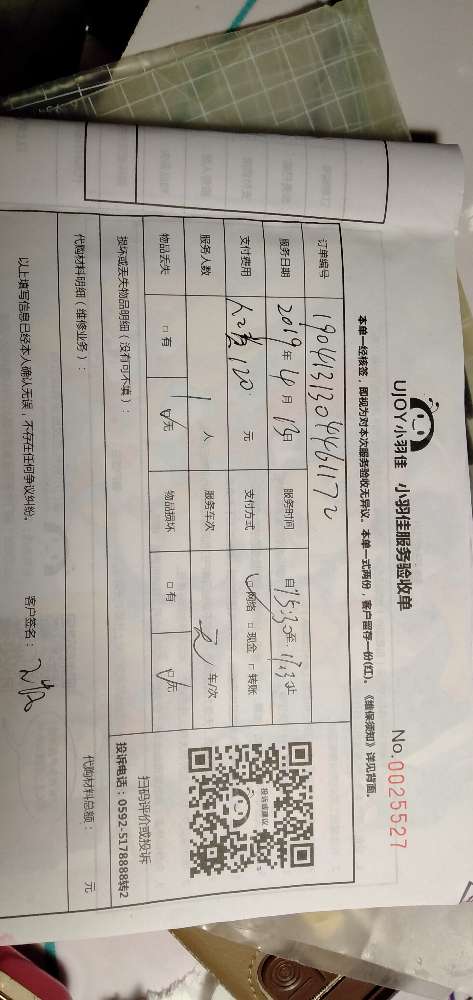 UJOY小羽佳 小羽佳服务验收单
No. 0025527
本单一经核签，即视为对本次服务验收无异议。本单一式两份，客户留存一份(红)。《维保须知》详见背面。
订单编号 19041313044461172
服务日期 2019年4月13日 服务时间 自15:30至17:30止
支付费用 人工费120元 支付方式 ☑网络 □现金 □转账
服务人数 1人 服务车次 无 车/次
物品丢失 □有 ☑无 物品损坏 □有 ☑无
投诉或建议
扫码评价或投诉
投诉电话：0592-5178888转2
损坏或丢失物品明细（没有可不填）：
代购材料明细（维修业务）： 代购材料总额： 元
以上填写信息已经本人确认无误，不存在任何争议纠纷。 客户签名：